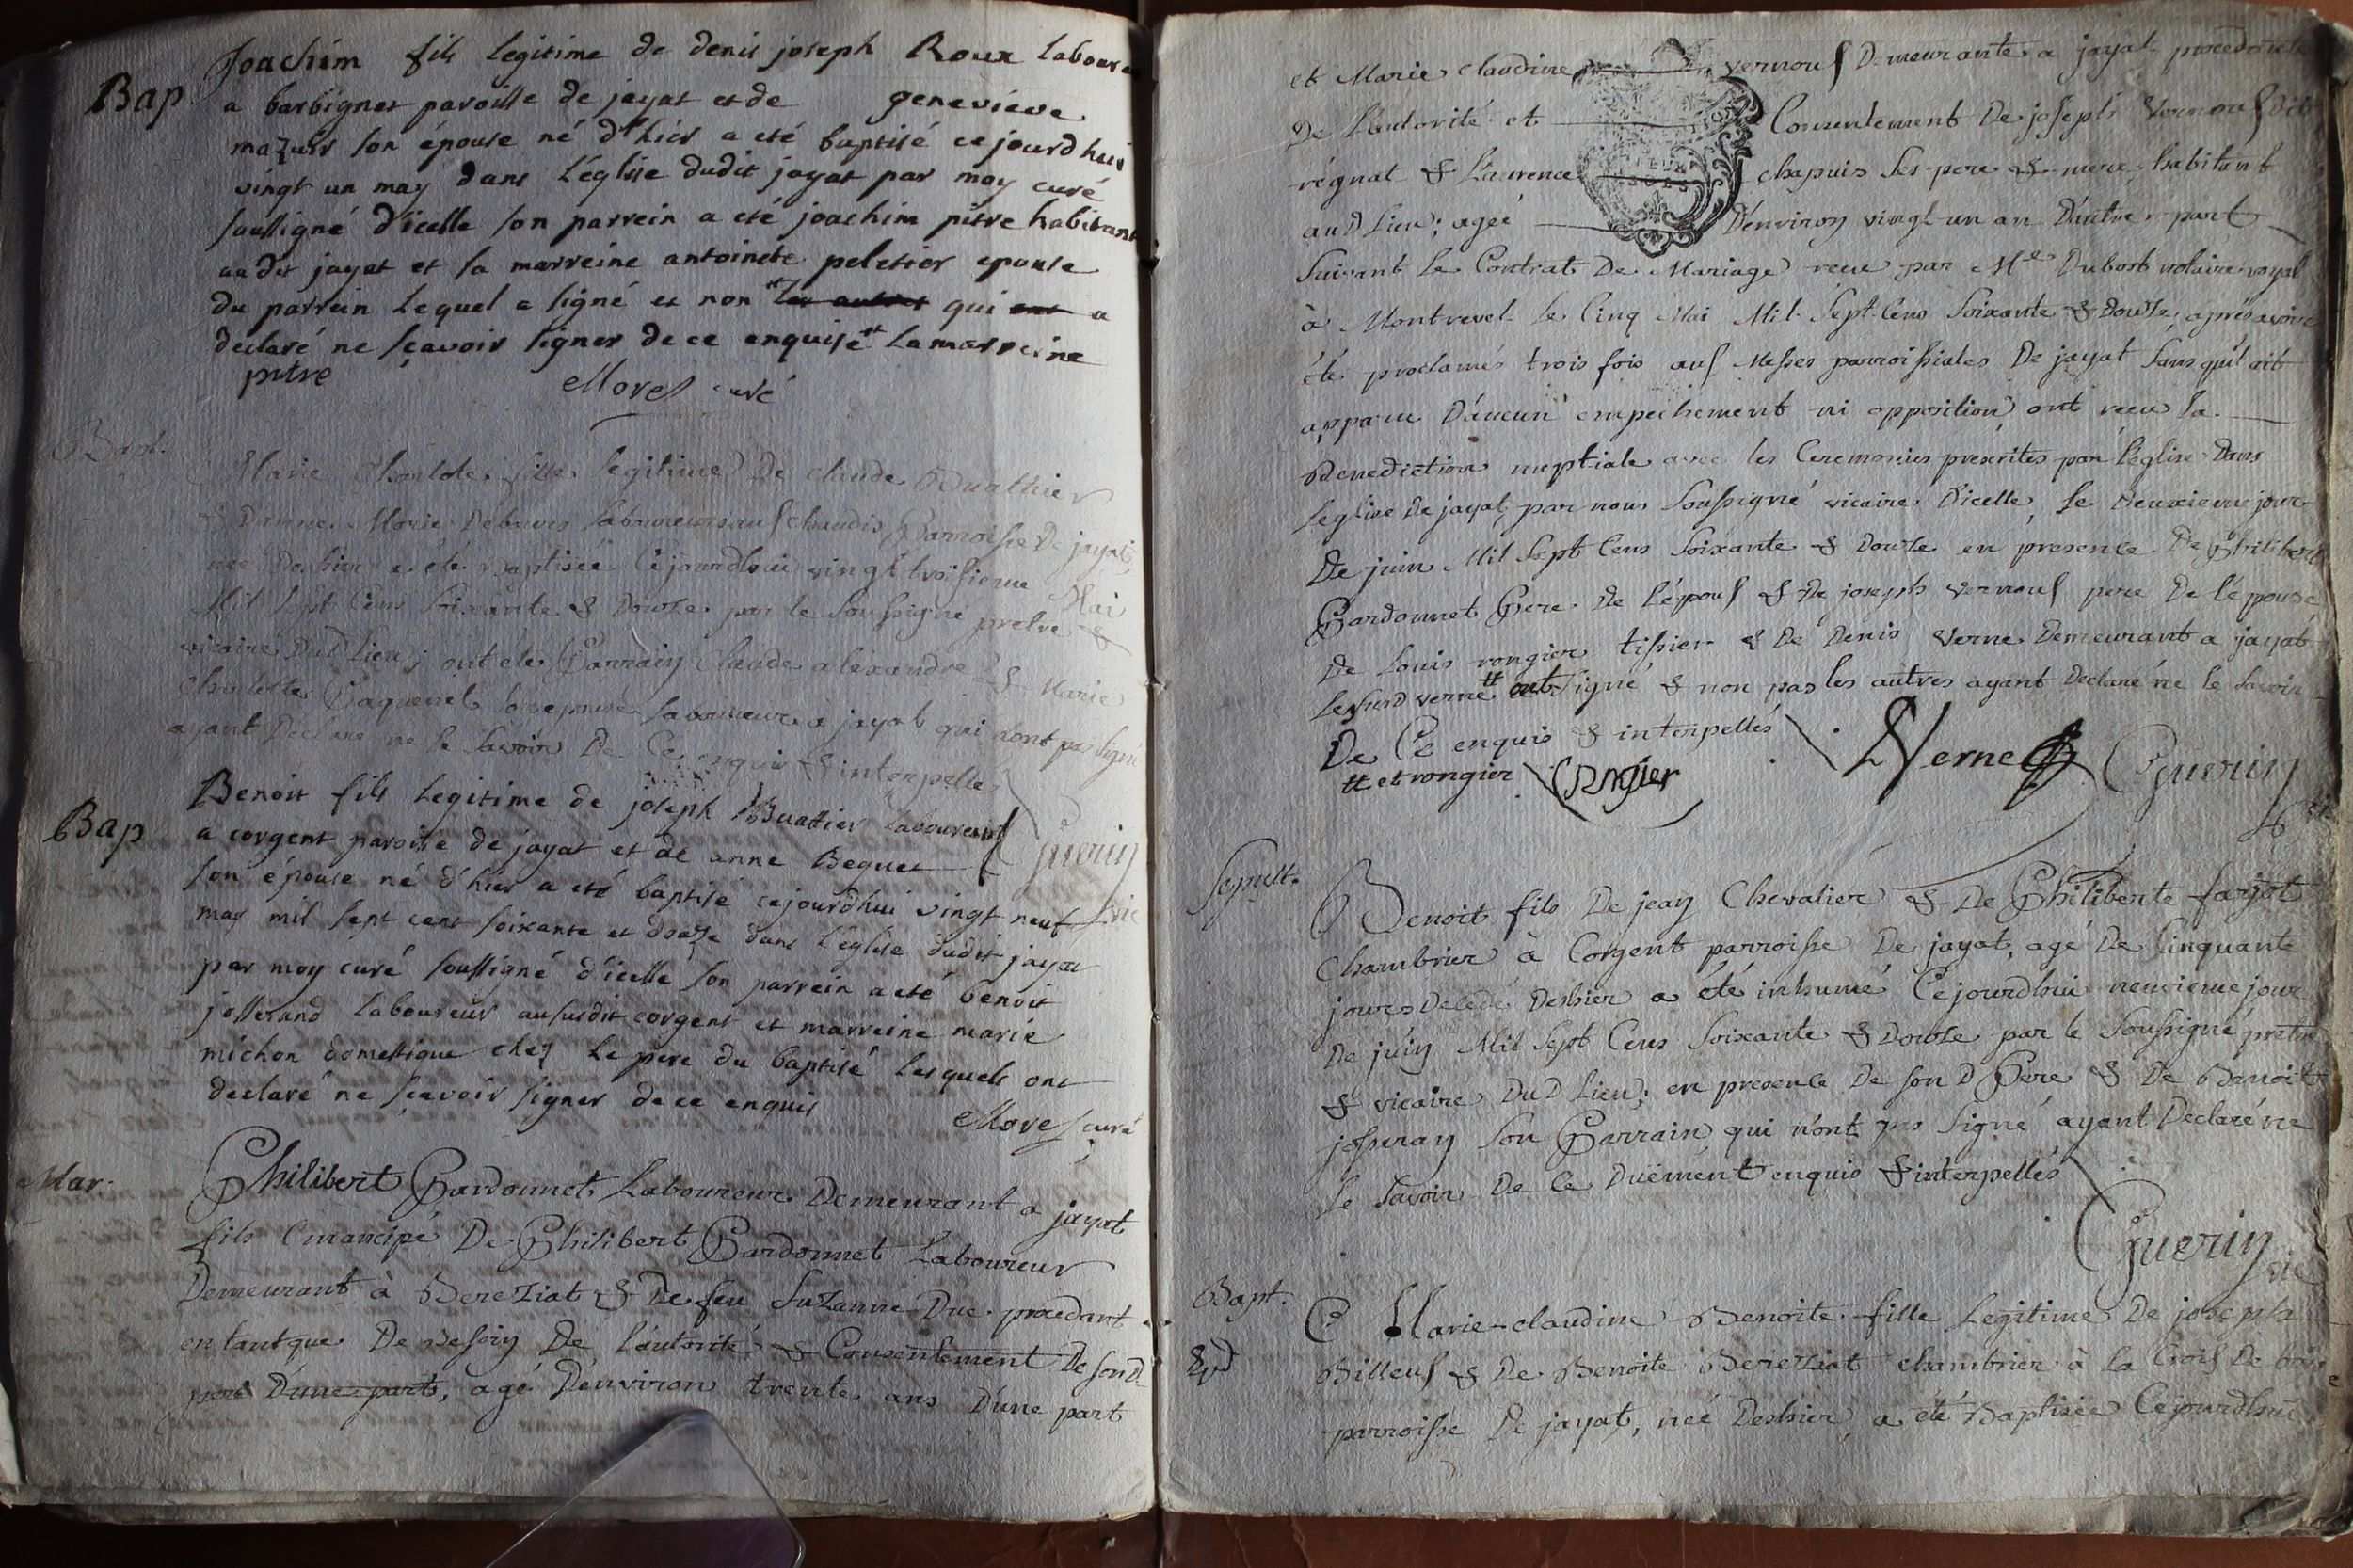 Bap
Joachim fils legitime de denis joseph Roux laboureur
a barbignet paroisse de jayat et de geneviéve
mazuir son épouse né d'hier a eté baptisé ce jourd huis
vingt un may dans l'église dudit jayat par moy curé
soussigné d'icelle son parrein a eté joachim pitre habitant
au dit jayat et la marreine antoinete peletier epouse
du parrein lequel a signé et non les autres qui ont a
declaré ne sçavoir signer de ce enquise la marreine
pitre Morel curé
Bapt.
Marie Charlote fille legitime De claude Buathier
& Danne Marie Debrues laboureurs aux chaudis Parroisse De jayat
née Deshier a été Baptisée Cejourdhui vingt troisieme Mai
Mil Sept Cens Soixante & Douze par le Soussigné pretre &
vicaire DuD Lieu; ont été Parrain Claude alexandre & Marie
Charlotte laboureur a jayat qui n'ont pas signé
ayant Declaré ne le Savoir De Ce enquis & interpellé
Guerin vic
Bap
Benoit fils legitime de joseph Buatier laboureur
a corgent paroisse de jayat et de anne Beguet
son épouse né d'hier a eté baptisé cejourdhui vingt neuf
may mil sept cent soixante et douze dans l'église dudit jayat
par moy curé soussigné d'icelle son parrein a eté benoit
josserand laboureur ausudit corgent et marreine marie
michon domestique chez le pere du baptisé lesquels ont
declaré ne sçavoir signer de ce enquis
Morel curé
Mar.
Philibert Pardonnet Laboureur Demeurant a jayat
fils Emancipé De Philibert Pardonnet Laboureur
Demeurant à Bereziat & De feu Suzanne Duc procedant
en tant que De Besoin De l'autorité & Consentement De son D.
pere D'une part, agé D'environ trente ans D'une part
et Marie Claudine vernouf Demeurante a jayat procedante
De l'autorité et Consentement De joseph vernouf dit
régnat & Laurence chapuis Ses pere & mere habitant
auD Lieu; ageé D'environ vingt un an D'autre part
Suivant le Contrat De Mariage recu par Me Dubost notaire royal
à Montrevel le Cinq Mai Mil Sept Cens Soixante & Douze, après avoir
été proclamés trois fois aux Messes parroissiales De jayat Sans qu'il ait
apparu D'aucun empechement ni opposition, ont recu la
Benediction nuptiale avec les Ceremonies prescrites par l'église Dans
leglise De jayat, par nous Soussigné vicaire D'icelle, le Deuxieme jour
De juin Mil Sept Cens Soixante & Douze en presence De Philibert
Pardonnet Pere De l'époux & De joseph vernouf pere De l'épouse
De Louis rongier tissier & De Denis Verne Demeurant a jayat
Lesusd verne # ont Signé & non pas les autres ayant Declaré ne le Savoir
De Ce enquis & interpellés
# et rongier Rongier DVerne Guerin
Sepult.
Benoit fils De jean Chevalier & De Philiberte farjot
Chambrier à Corgent parroisse De jayat, agé De Cinquante
jours Decedé Deshier a été inhumé Cejourdhui neuvieme jour
De juin Mil Sept Cens Soixante & Douze par le Soussigné pretre
& vicaire DuD Lieu; en presence De son D Pere & De Benoit
josseran Son Parrain qui n'ont pas Signé ayant Declaré ne
le Savoir De Ce Duement enquis & interpellés
Guerin
vic
Bapt.
Marie-claudine Benoite fille Legitime De joseph
Billouf & De Benoite Bereziat chambrier à la Croix De bois
parroisse De jayat, née Deshier, a été Baptisée Cejourdhui